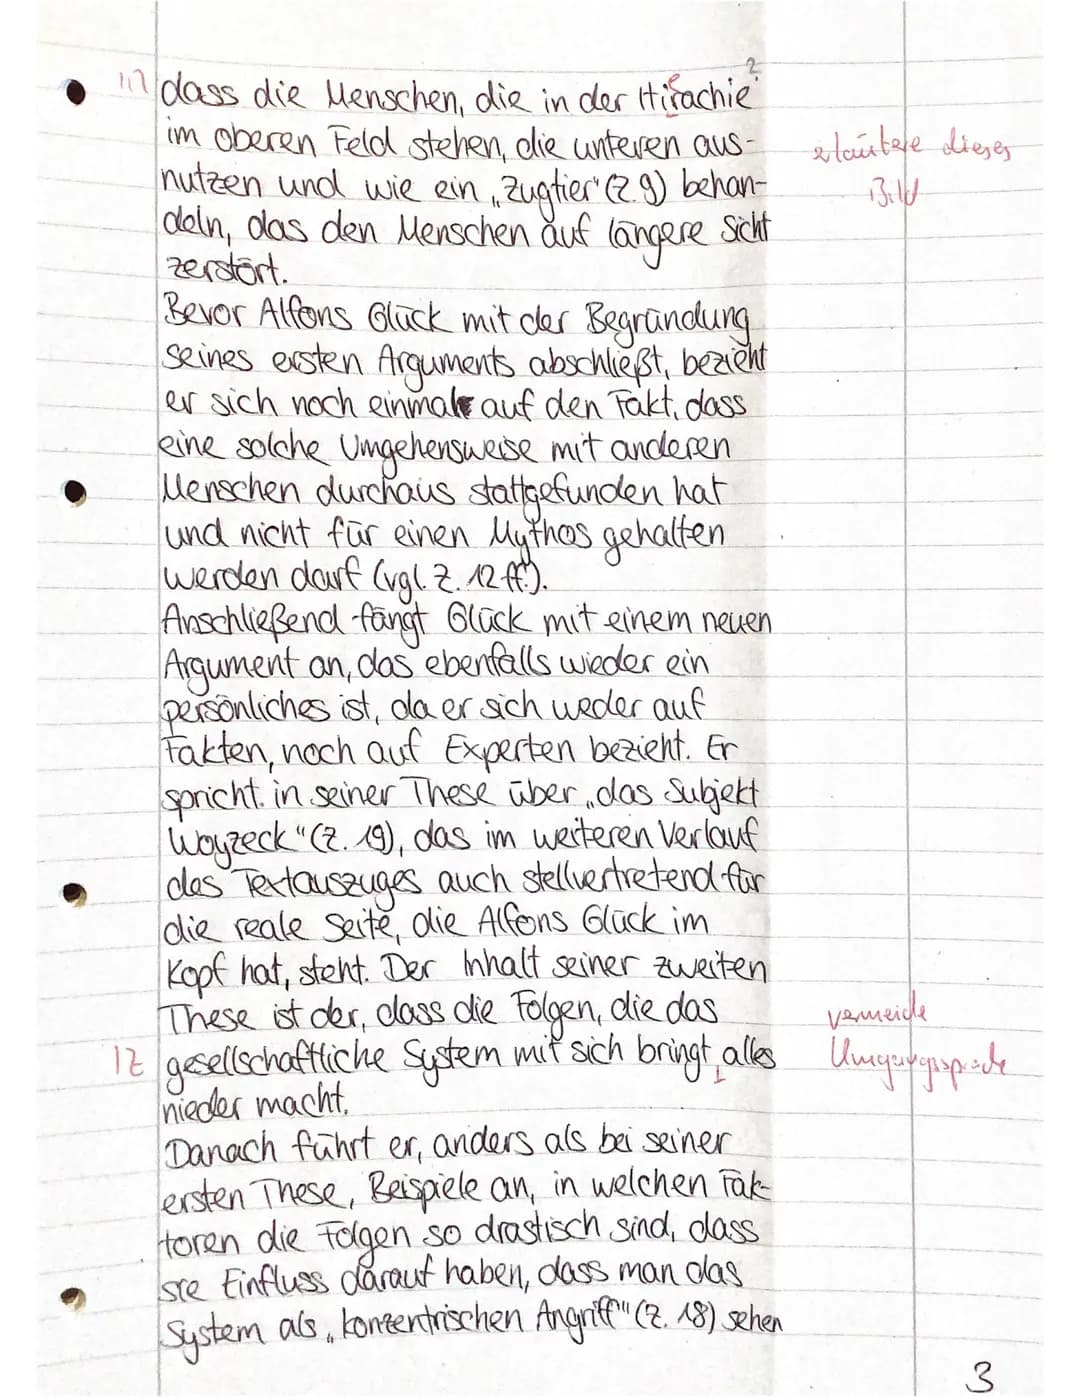 dass die Menschen, die in der Hirachie
im oberen Feld stehen, die unteren aus-
erläutere dieses
Bild
nutzen und wie ein „Zugtier" (Z. 9) behan-
deln, das den Menschen auf längere Sicht
zerstört.
Bevor Alfons Glück mit der Begründung
seines ersten Arguments abschließt, bezieht
er sich noch einmal auf den Fakt, dass
eine solche Umgehensweise mit anderen
Menschen durchaus stattgefunden hat
und nicht für einen Mythos gehalten
werden darf (vgl. Z. 12 ff.).
Anschließend fängt Glück mit einem neuen
Argument an, das ebenfalls wieder ein
persönliches ist, da er sich weder auf
Fakten, noch auf Experten bezieht. Er
spricht in seiner These über „das Subjekt
Woyzeck" (Z. 19), das im weiteren Verlauf
des Textauszuges auch stellvertretend für
die reale Seite, die Alfons Glück im
Kopf hat, steht. Der Inhalt seiner zweiten
These ist der, dass die Folgen, die das
vermeide
Umgangssprache
gesellschaftliche System mit sich bringt, alles
nieder macht.
Danach führt er, anders als bei seiner
ersten These, Beispiele an, in welchen Fak-
toren die Folgen so drastisch sind, dass
sie Einfluss darauf haben, dass man das
System als „konzentrischen Angriff" (Z. 18) sehen
3